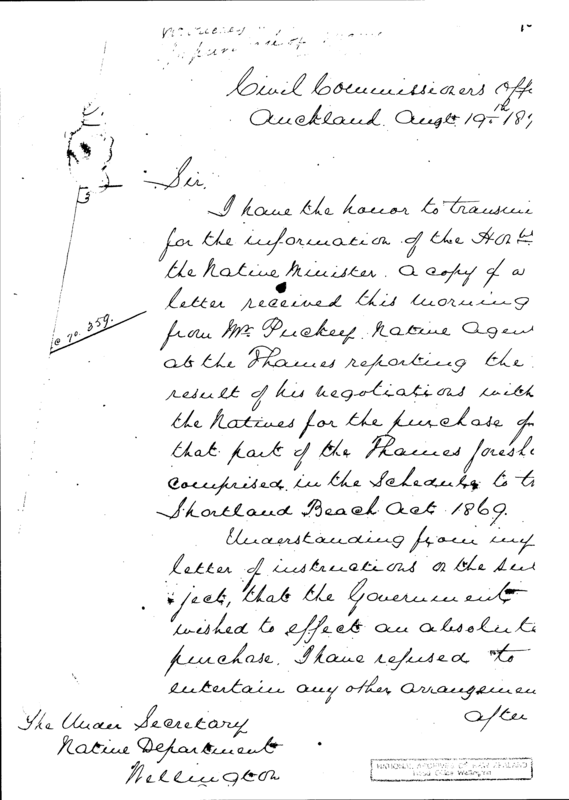 Civil Commissioners Off
Auckland Augt 19th 187
Sir,
I have the honor to transmi
for the information of the Honble
the Native Minister. A copy of a
letter received this morning
from Mr. Puckey Native Agen
at the Thames reporting the
result of his negotiations with
the Natives for the purchase of
that part of the Thames foresh
comprised in the Schedule to t
Shortland Beach Act 1869.
Understanding from my
letter of instructions on the sub
ject, that the Government
wished to effect an absolute
purchase. I have refused to
entertain any other arrangemen
after
The Under Secretary
Native Department
Wellington
70.359.
NATIONAL ARCHIVES OF NEW ZEALAND
Head Office Wellington